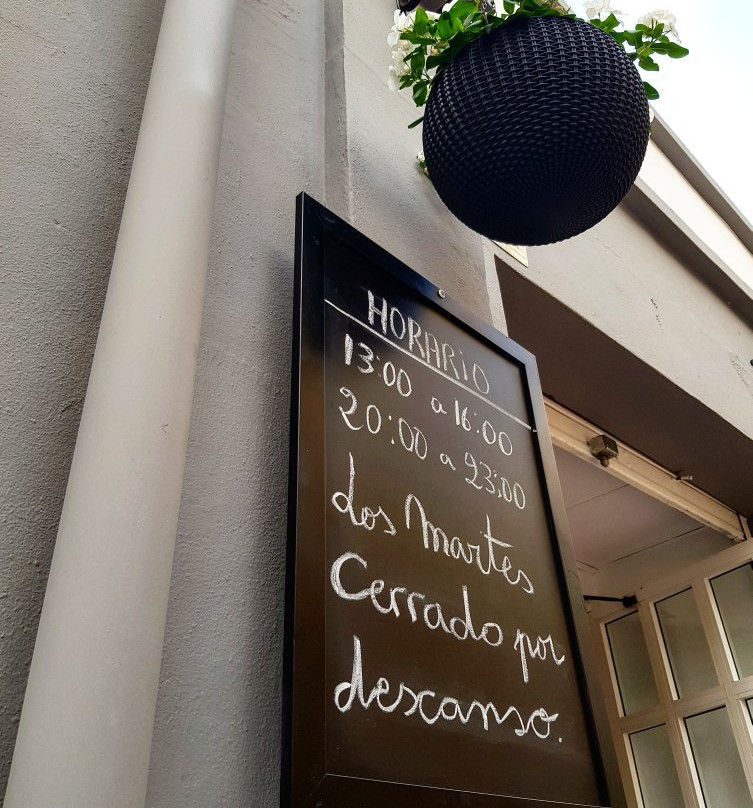 HORARIO
13:00 a 16:00
20:00 a 23:00
Los Martes
Cerrado por
descanso.